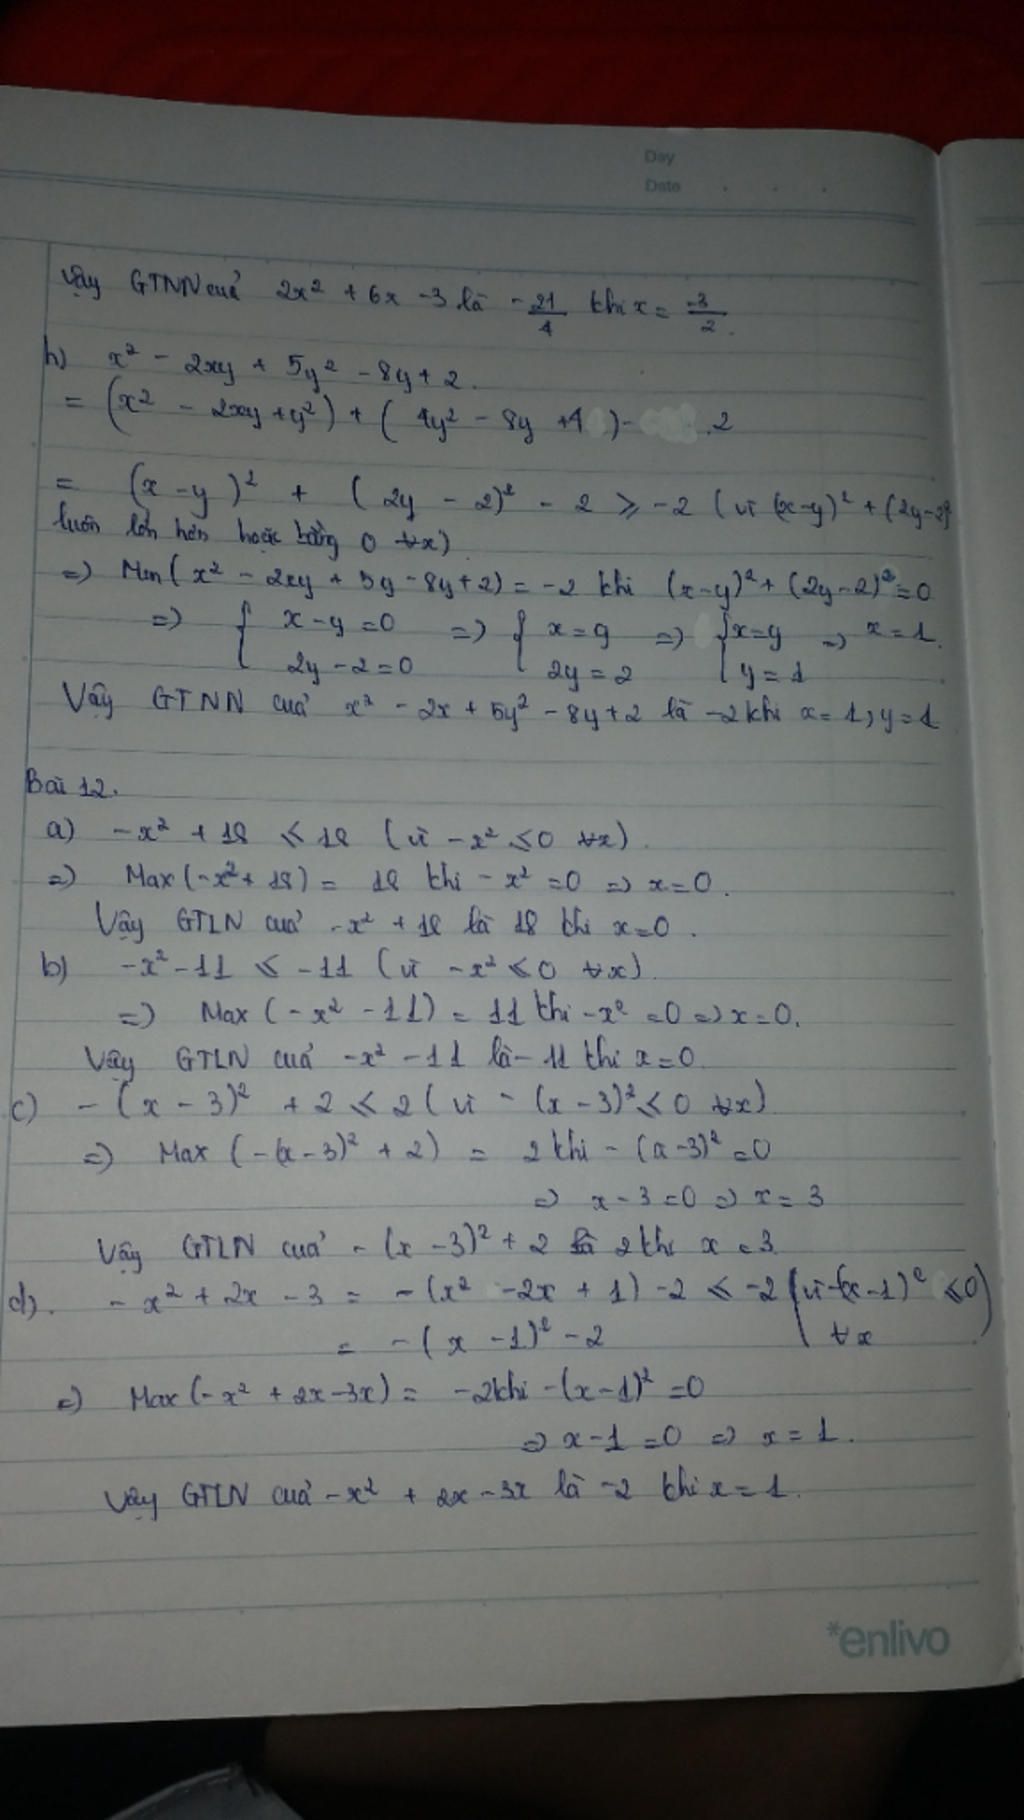 Day
Date . . .
Vậy GTNN của 2x² + 6x - 3 là -21/4 khi x = -3/2.
h) x² - 2xy + 5y² - 8y + 2.
= (x² - 2xy + y²) + (4y² - 8y + 4) - 2
= (x - y)² + (2y - 2)² - 2 ⩾ -2 (vì (x-y)² + (2y-2)²
luôn lớn hơn hoặc bằng 0 ∀x)
=> Min (x² - 2xy + 5y - 8y + 2) = -2 khi (x-y)² + (2y-2)² = 0
=> { x - y = 0 => { x = y => { x = y => x = 1.
2y - 2 = 0 2y = 2 y = 1
Vậy GTNN của x² - 2x + 5y² - 8y + 2 là -2 khi x = 1, y = 1
Bài 12.
a) -x² + 18 ⩽ 18 (vì -x² ⩽ 0 ∀x).
=> Max (-x² + 18) = 18 khi -x² = 0 => x = 0.
Vậy GTLN của -x² + 18 là 18 khi x = 0.
b) -x² - 11 ⩽ -11 (vì -x² ⩽ 0 ∀x).
=> Max (-x² - 11) = 11 khi -x² = 0 => x = 0.
Vậy GTLN của -x² - 11 là -11 khi x = 0
c) -(x - 3)² + 2 ⩽ 2 (vì -(x - 3)² ⩽ 0 ∀x)
=> Max (-(x - 3)² + 2) = 2 khi -(x - 3)² = 0
=> x - 3 = 0 => x = 3
Vậy GTLN của -(x - 3)² + 2 là 2 khi x = 3
d). -x² + 2x - 3 = -(x² - 2x + 1) - 2 ⩽ -2 (vì -(x - 1)² ⩽ 0
= -(x - 1)² - 2 ∀x)
=> Max (-x² + 2x - 3x) = -2 khi -(x - 1)² = 0
=> x - 1 = 0 => x = 1.
Vậy GTLN của -x² + 2x - 3x là -2 khi x = 1.
*enlivo